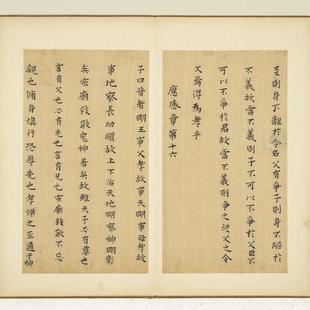 友則身不離於令名父有爭子則身不陷於
不義故當不義則子不可以不爭於父臣不
可以不爭於君故當不義則爭之從父之令
又焉得為孝乎
應感章第十六
子曰昔者明王事父孝故事天明事母孝故
事地察長幼順故上下治天地明察神明彰
矣宗廟致敬鬼神著矣故雖天子必有尊也
言有父也必有先也言有兄也宗廟致敬不忘
親也脩身慎行恐辱先也孝悌之至通於神